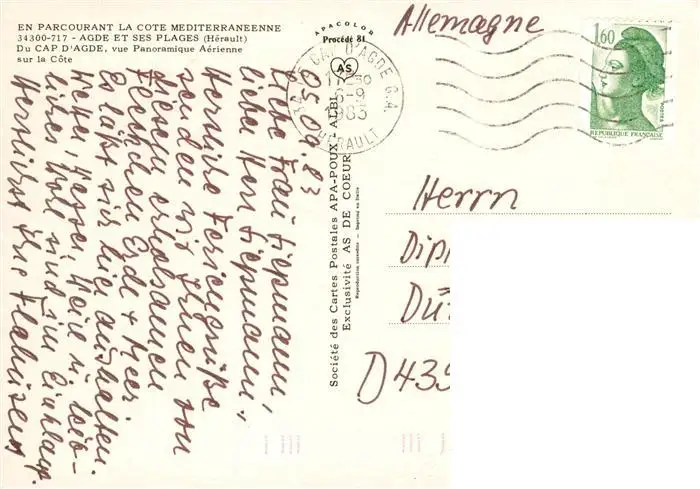 EN PARCOURANT LA COTE MEDITERRANEENNE
34300-717 - AGDE ET SES PLAGES (Hérault)
Du CAP D'AGDE, vue Panoramique Aérienne
sur la Côte
APACOLOR
Procédé 81
AS
Société des Cartes Postales APA-POUX - ALBI
Exclusivité AS DE COEUR
Reproduction interdite - Imprimé en Italie
CAP D'AGDE G.A.
5-9
1983
HERAULT
1,60
POSTES
REPUBLIQUE FRANÇAISE
Allemagne
Herrn
Dipl
Dü
D 435
05.09.83
Liebe Frau Siepmann,
lieber Herr Siepmann,
Feriengrüße
senden wir Ihnen von
diesem erholsamen
Fleckchen Erde + Meer
Es läßt sich hier aushalten.
Wetter, Wasser, Wein u. leib-
liches Wohl sind im Einklang.
Herzlichst Ihre